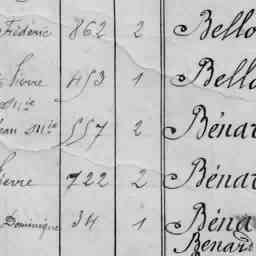 Frédéric 862 2 Bello
Pierre 453 1 Bello
Mie
Jean Mie 557 2 Bénar
Pierre 722 2 Bénar
Dominique 34 1 Béna
Benard